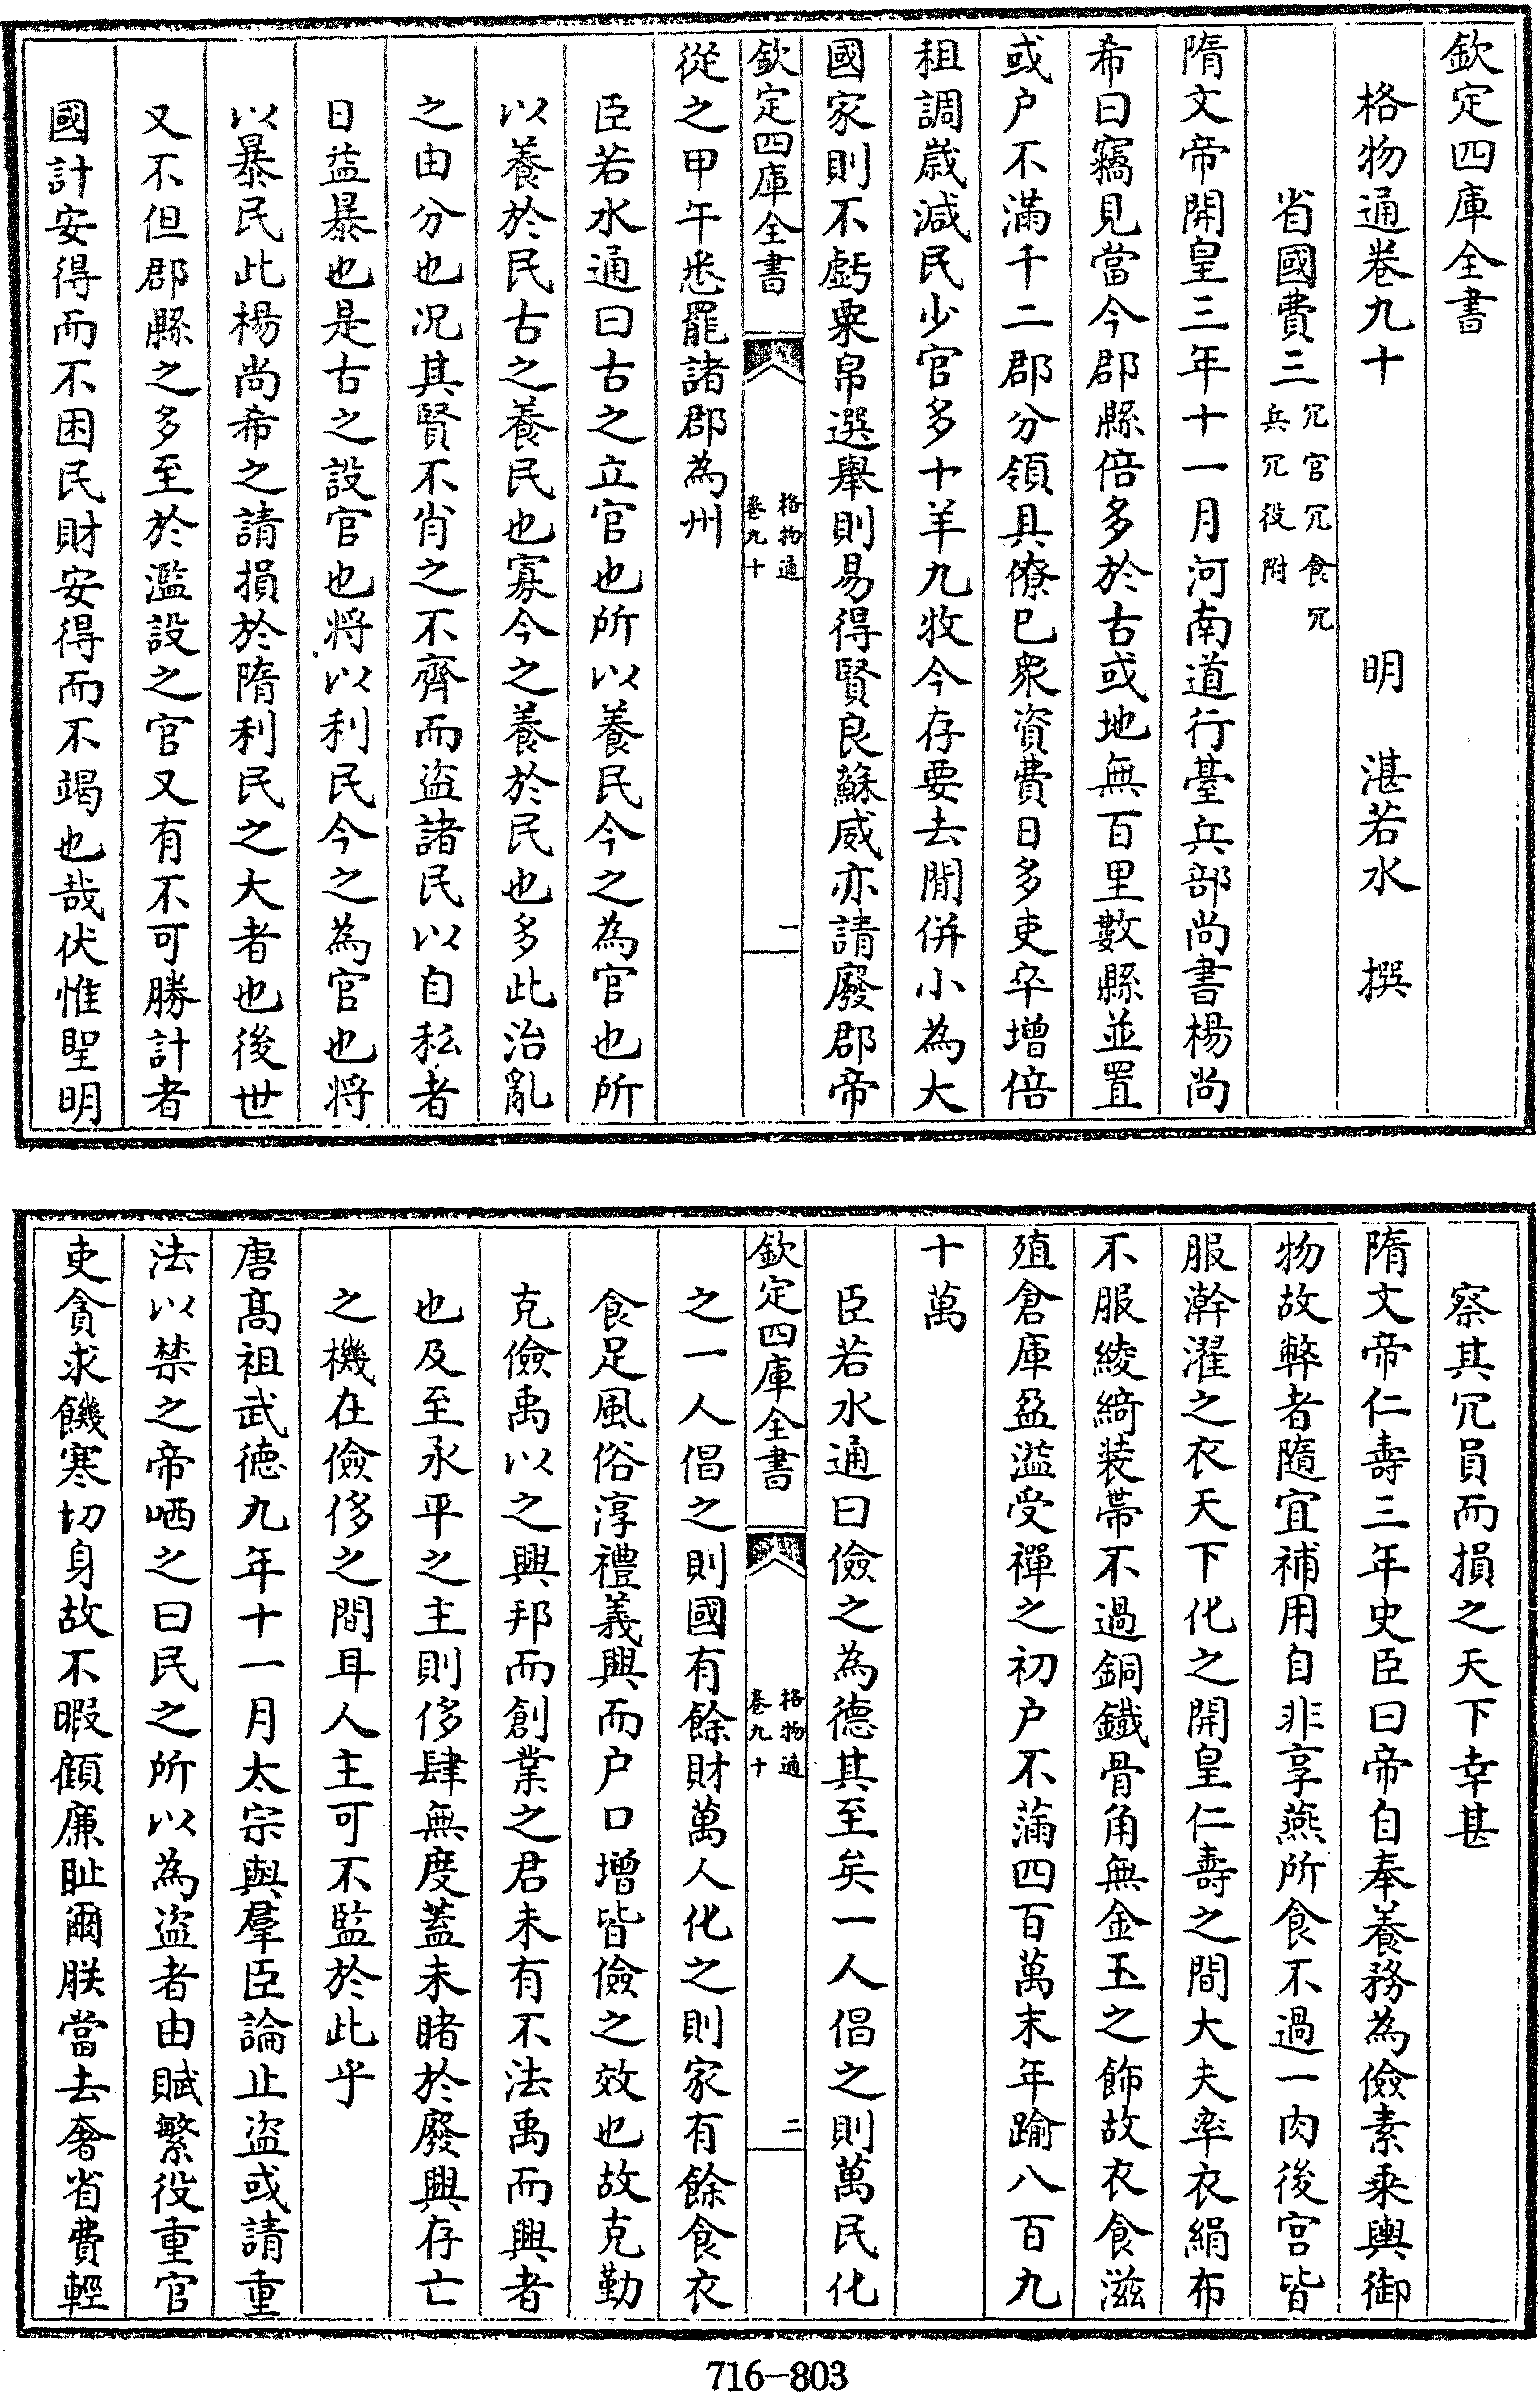 欽定四庫全書
格物通卷九十
明 湛若水 撰
省國費三冗官冗食冗
兵冗役附
隋文帝開皇三年十一月河南道行臺兵部尚書楊尚
希曰竊見當今郡縣倍多於古或地無百里數縣並置
或户不滿千二郡分領具僚已衆資費日多吏卒增倍
租調歲減民少官多十羊九牧今存要去閒併小為大
國家則不虧粟帛選舉則易得賢良蘇威亦請廢郡帝
欽定四庫全書
格物通
卷九十
一
從之甲午悉罷諸郡為州
臣若水通曰古之立官也所以養民今之為官也所
以養於民古之養民也寡今之養於民也多此治亂
之由分也况其賢不肖之不齊而盜諸民以自私者
日益暴也是古之設官也将以利民今之為官也将
以暴民此楊尚希之請損於隋利民之大者也後世
又不但郡縣之多至於濫設之官又有不可勝計者
國計安得而不困民財安得而不竭也哉伏惟聖明
察其冗員而損之天下幸甚
隋文帝仁壽三年史臣曰帝自奉養務為儉素乘輿御
物故弊者隨宜補用自非享燕所食不過一肉後宫皆
服澣濯之衣天下化之開皇仁壽之間大夫率衣絹布
不服綾綺装帶不過銅鐵骨角無金玉之飾故衣食滋
殖倉庫盈溢受禪之初户不蒲四百萬末年踰八百九
十萬
臣若水通曰儉之為德其至矣一人倡之則萬民化
欽定四庫全書
格物通
卷九十
二
之一人倡之則國有餘財萬人化之則家有餘食衣
食足風俗淳禮義興而户口增皆儉之效也故克勤
克儉禹以之興邦而創業之君未有不法禹而興者
也及至承平之主則侈肆無度蓋未睹於廢興存亡
之機在儉侈之間耳人主可不監於此乎
唐髙祖武德九年十一月太宗與羣臣論止盜或請重
法以禁之帝哂之曰民之所以為盜者由賦繁役重官
吏貪求饑寒切身故不暇顧廉耻爾朕當去奢省費輕
716-803